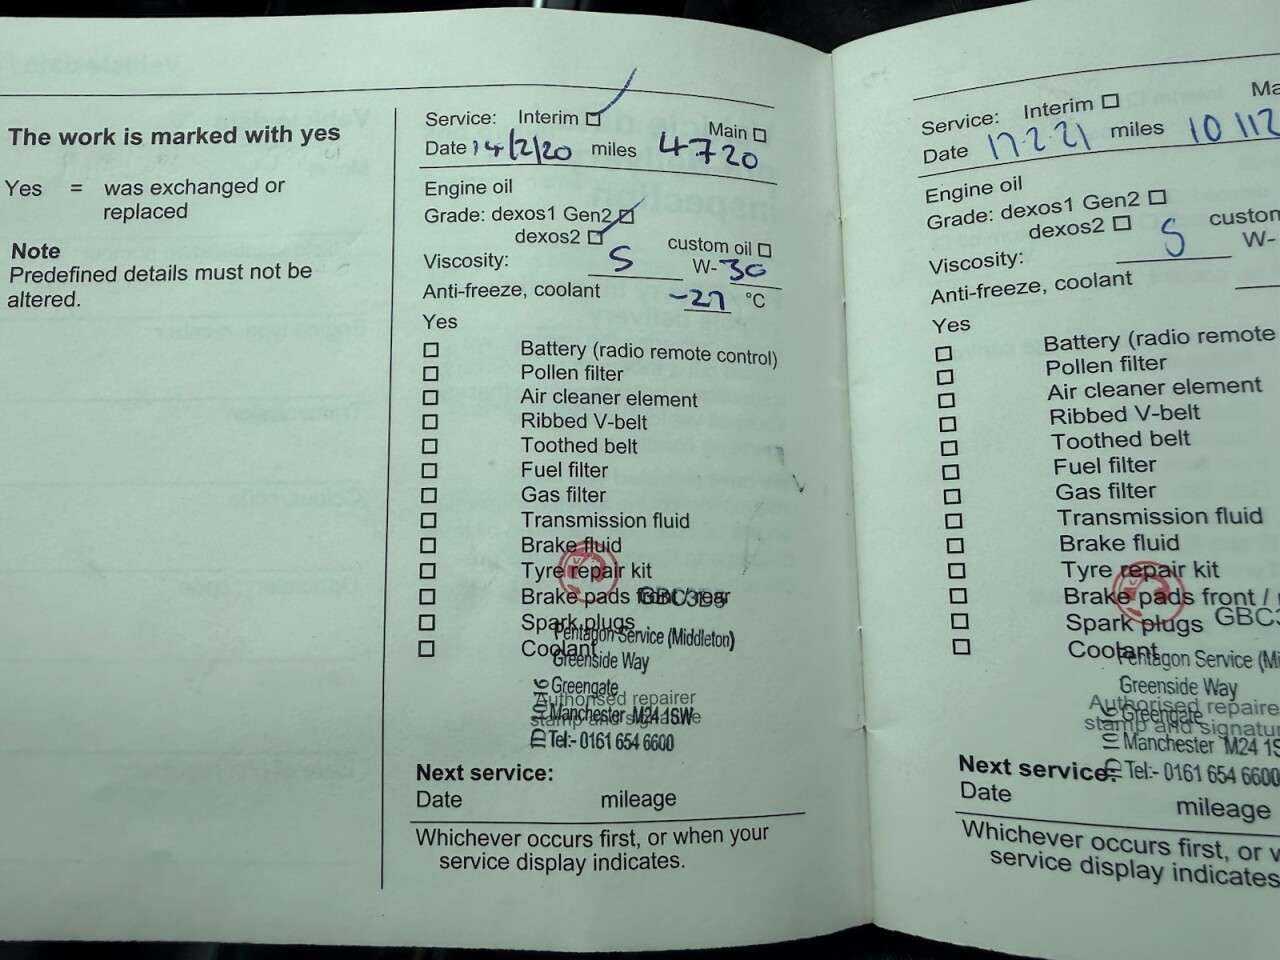 The work is marked with yes
Yes = was exchanged or
replaced
Note
Predefined details must not be
altered.
Service: Interim
Main
Date 14/2/20 miles 4720
Engine oil
Grade: dexos1 Gen2
dexos2
custom oil
Viscosity: 5 W-30
Anti-freeze, coolant -27 °C
Yes
Battery (radio remote control)
Pollen filter
Air cleaner element
Ribbed V-belt
Toothed belt
Fuel filter
Gas filter
Transmission fluid
Brake fluid
Tyre repair kit
Brake pads front / rear
Spark plugs
Pentagon Service (Middleton)
Coolant
Greenside Way
Greengate
Authorised repairer
Manchester M24 1SW
stamp and signature
Tel:- 0161 654 6600
Next service:
Date mileage
Whichever occurs first, or when your
service display indicates.
Service: Interim Ma
Date 17.2.21 miles 10 112
Engine oil
Grade: dexos1 Gen2
dexos2
custom
Viscosity: 5 W-
Anti-freeze, coolant
Yes
Battery (radio remote
Pollen filter
Air cleaner element
Ribbed V-belt
Toothed belt
Fuel filter
Gas filter
Transmission fluid
Brake fluid
Tyre repair kit
Brake pads front /
Spark plugs
Coolant
Pentagon Service (Mi
Greenside Way
Authorised repaire
Greengate
stamp and signatur
Manchester M24 1S
Next service:
Tel:- 0161 654 6600
Date mileage
Whichever occurs first, or
service display indicates